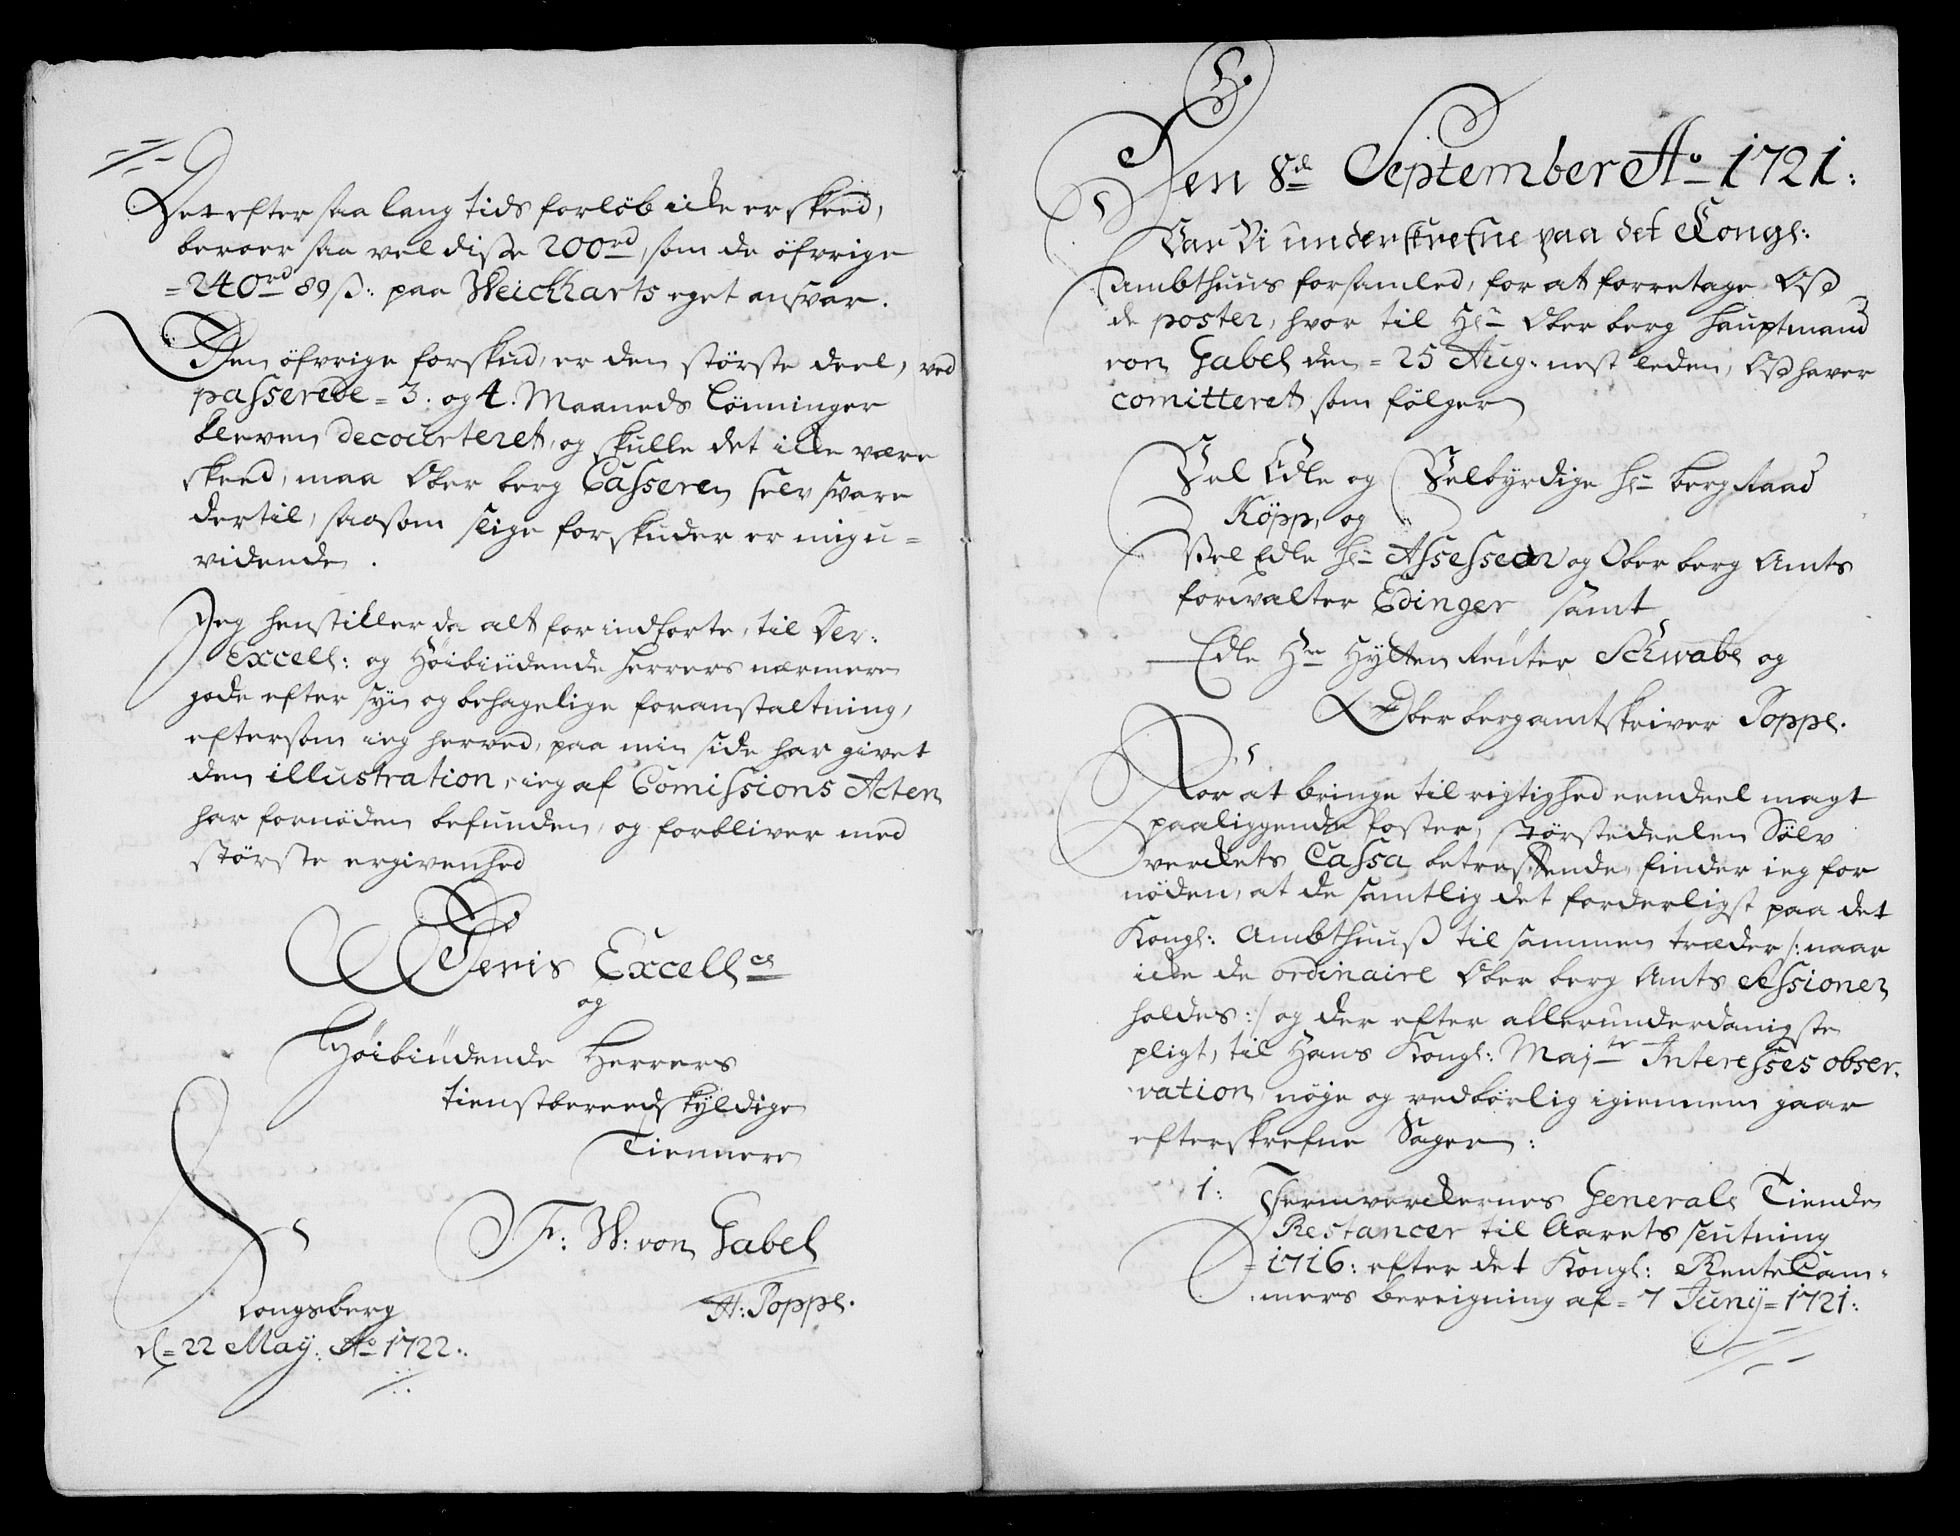 -//-
Det efter saa lang tids forløb icke er skeed,
beroer saa vel disse 200rd, som de öfrige
=240rd 89ß: paa Weickharts eget ansvar.
Den öfrige forskud, er den største deel, ved
passerede = 3. og 4. Maaneds Lønninger
bleven decourteret, og skulle det icke være
skeed, maa Ober berg Casseren selv svare
dertil, saasom slige forskuder er mig u=
vidende.
Jeg henstiller da alt forindførte, til Der:
Excell: og Høibiüdende Herrers nærmere
gode efter syn og behagelige foranstaltning,
eftersom ieg herved, paa min side har givet
den illustration, ieg af Comissions Acten
har fornöden befunden, og forbliver med
største ergivenhed
Deris Excellce
og
Høibiüdende Herrers
tienstbereedskyldige
Tiennere
Fr: W: von Gabel
Kongsberg
H: Poppe.
d= 22 May: Ao 1722:.
Den 8de September Ao 1721:
Var Vi underskrefne paa det Kongl:
Ambthuus forsamled, for at forretage Oss
de poster, hvor til Hr Ober berg Hauptmand
von Gabel den = 25 Aug: nest leden, Oss haver
comitteret som fölger
Vel Edle og Velbyrdige Hr berg Raad
Köpp, og
Vel Edle Hr Assessor og Ober berg Amts
forvalter Edinger samt
Edle Hr Hytten Reüter Schwabe og
Ober bergamtskriver Poppe.
For at bringe til rigtighed eendeel magt
paaliggende Poster, størstedeelen Sölv
verckets Cassa betreffende, finder ieg for
nöden, at de samtlig det forderligst paa det
Kongl: Ambthuuß til sammen træder /: naar
icke de ordinaire Ober berg Amts Sessioner
holdes :/ og der efter allerunderdanigste
pligt, til Hans Kongl: Majtr Interesses obser-
vation, nöje og vedbörlig igiennem gaar
efterskrefne Sager:
1: Jernverckernes Generale Tiende
Restancer til Aarets slutning
=1716: efter det Kongl: RenteCam-
mers beregning af = 7 Juny = 1721:
-//-